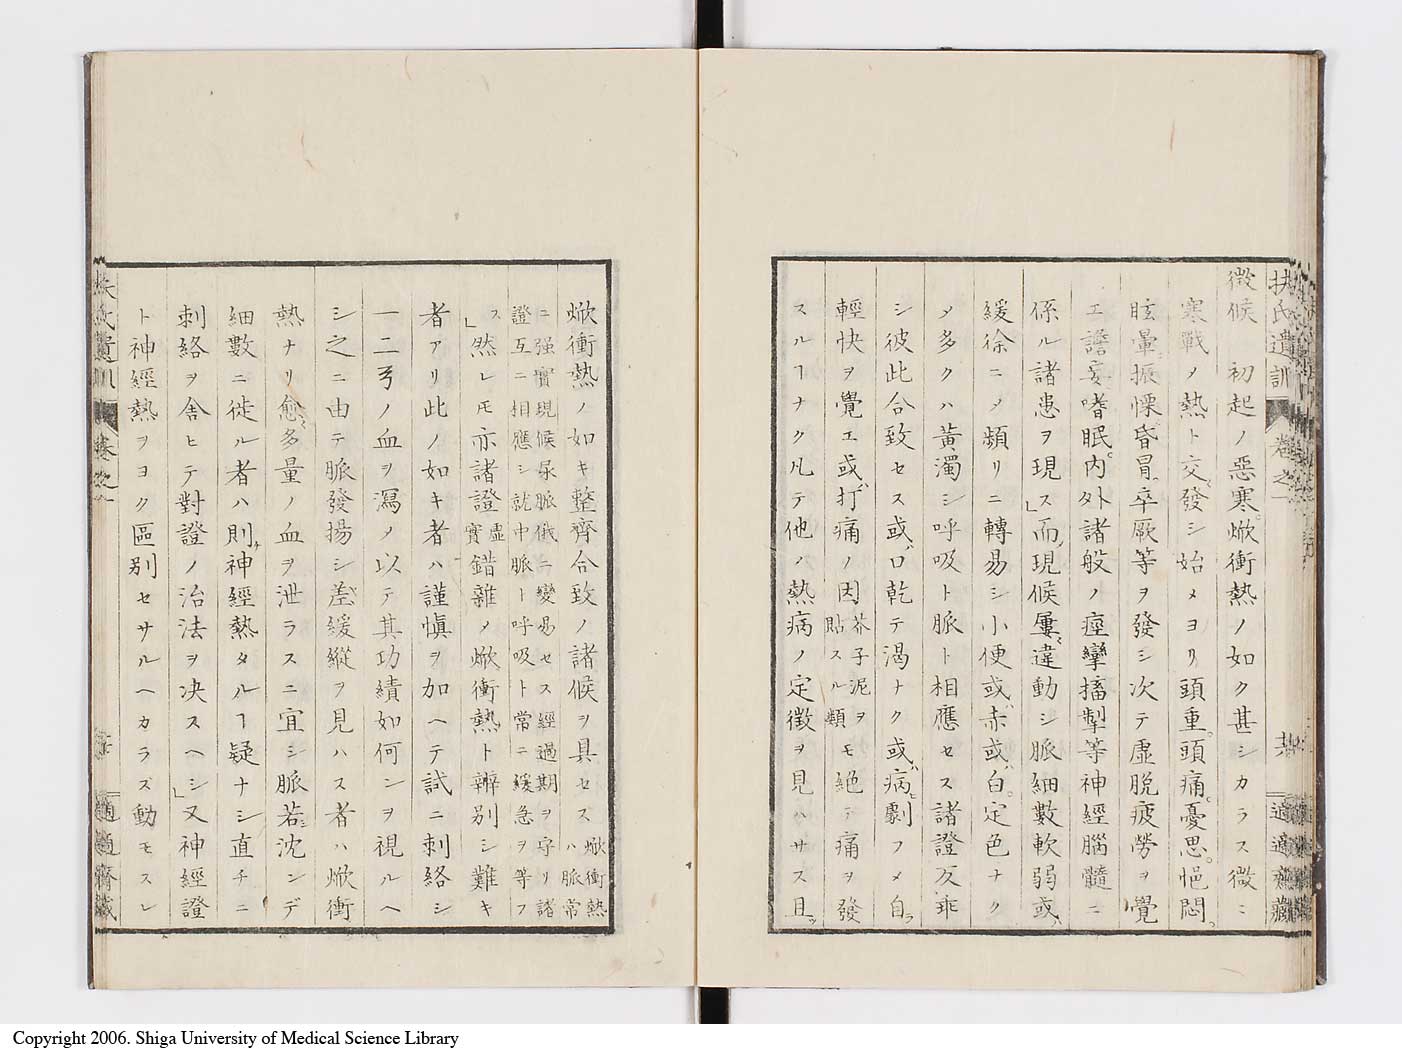 扶氏遺訓 卷之一 共 適適齋藏
徴候 初起ノ惡寒。焮衝熱ノ如ク甚シカラス微ニ
寒戰メ熱ト交發シ始メヨリ頭重。頭痛。憂思。悒悶。
眩暈。振慄。昏冒。卒厥等ヲ發シ次テ虛脱疲勞ヲ覺
エ譫妄嗜眠。内外諸般ノ痙攣搐掣等神經腦髓ニ
係ル諸患ヲ現ス」而ノ現候屢違動シ脈細數軟弱或ハ
緩徐ニメ頻リニ轉易シ小便或ハ赤或ハ白。定色ナク
メ多クハ黃濁シ呼吸ト脈ト相應セス諸證互ニ乖
シ彼此合致セス或ハ口乾テ渴ナク或ハ病ヒ劇フメ自ラ
輕快ヲ覺エ或ハ打痛ノ因芥子泥ヲ貼スル類モ絶テ痛ヲ發
スルヿナク凡テ他ノ熱病ノ定徴ヲ見ハサス且ツ
焮衝熱ノ如キ整齊合致ノ諸候ヲ具セス焮衝熱ハ脈常
ニ强實現候尿脈儀ニ變易セス經過期ヲ守リ諸
證互ニ相應シ就中脈ト呼吸ト常ニ緩急ヲ等フ
ス」然レモ亦諸證虛實錯雜ノ焮衝熱ト辨別シ難キ
者アリ此ノ如キ者ハ謹愼ヲ加ヘテ試ニ刺絡シ
一二弓ノ血ヲ瀉メ以テ其功績如何ンヲ視ルヘ
シ之ニ由テ脈發揚シ差緩縱ヲ見ハス者ハ焮衝
熱ナリ愈多量ノ血ヲ泄ラスニ宜シ脈若シ沈ンデ
細數ニ徙ル者ハ則チ神經熱タルヿ疑ナシ直チニ
刺絡ヲ舍ヒテ對證ノ治法ヲ决スヘシ」又神經證
ト神經熱ヲヨク區別セサルヘカラズ動モスレ
扶氏遺訓 卷之一 適適齋藏
Copyright 2006. Shiga University of Medical Science Library